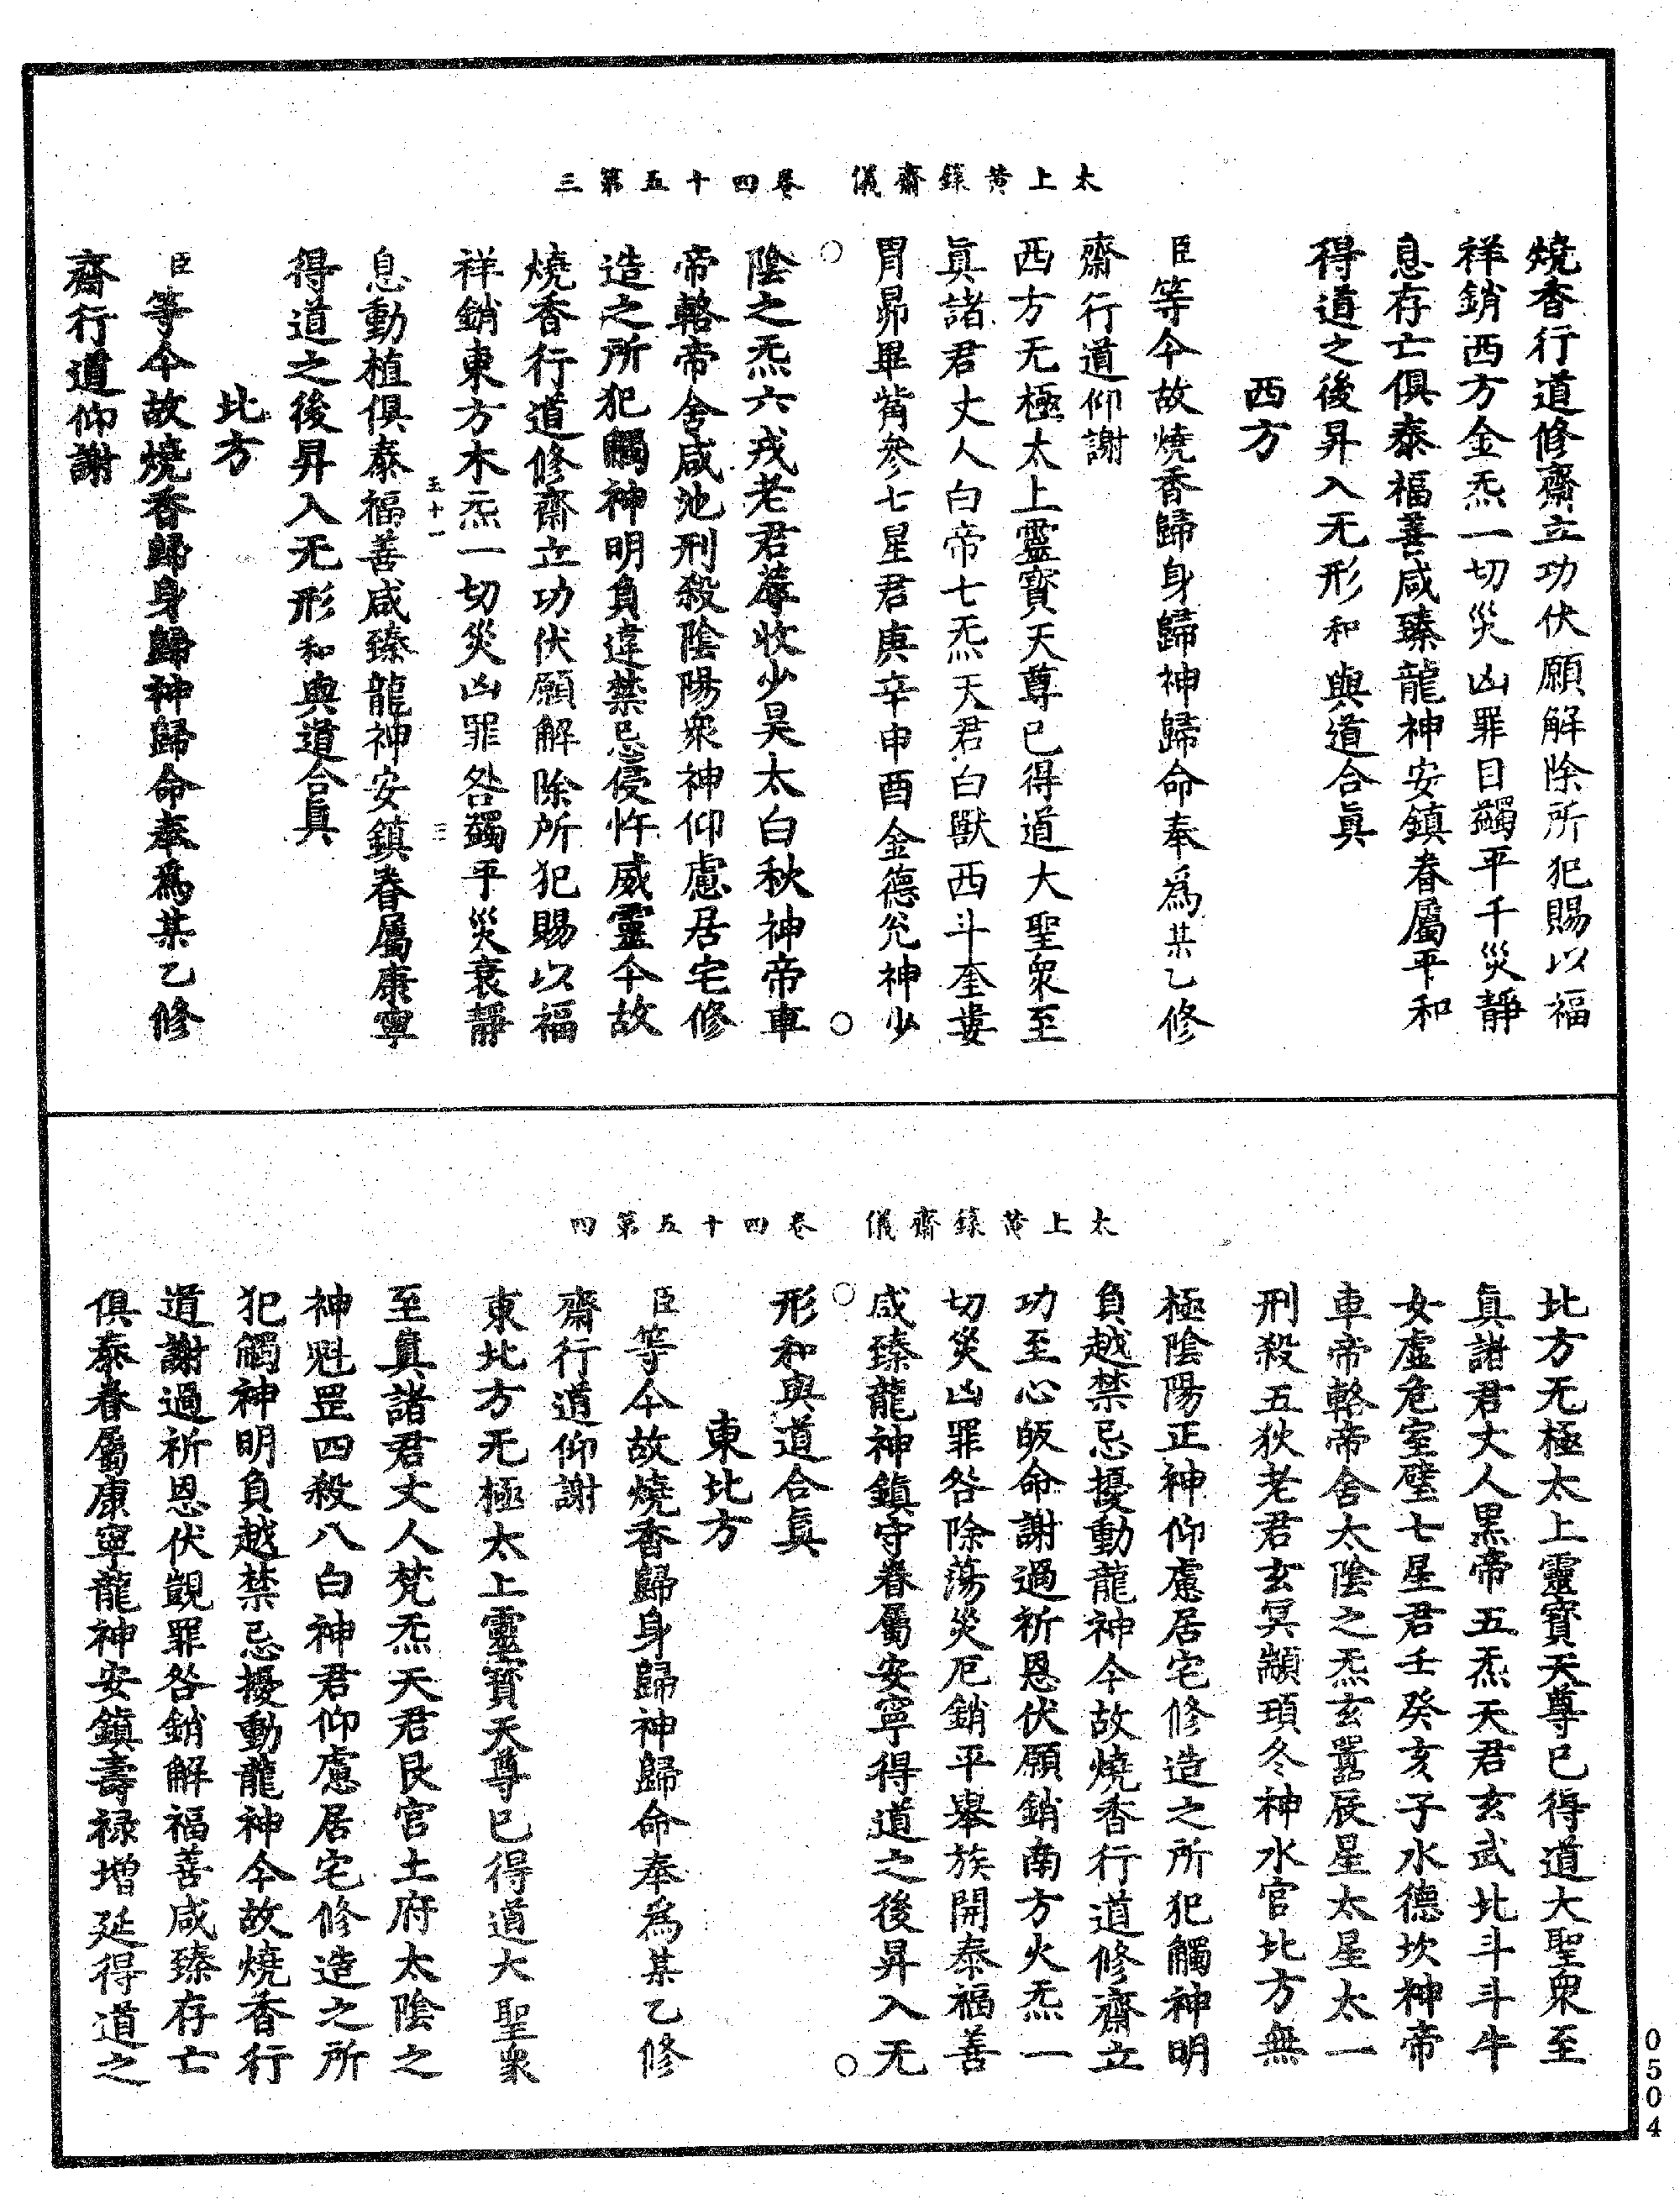 太上黄籙齋儀　卷四十五第三
燒香行道修齋立功伏願解除所犯賜以福
祥銷西方金炁一切災凶罪目蠲平千災靜
息存亡俱泰福善咸臻龍神安鎮眷屬平和
得道之後昇入无形和與道合眞
西方
臣等今故燒香歸身歸神歸命奉爲某乙修
齋行道仰謝
西方无極太上靈寳天尊已得道大聖衆至
眞諸君丈人白帝七炁天君白獸西斗奎婁
胃昴畢觜參七星君庚辛申酉金德兊神少
陰之炁六戎老君蓐收少昊太白秋神帝車
帝輅帝舍咸池刑殺陰陽衆神仰慮居宅修
造之所犯觸神明負違禁忌侵忤威靈今故
燒香行道修齋立功伏願解除所犯賜以福
祥銷東方木炁一切災凶罪咎蠲平災衰靜
五十一　三
息動植俱泰福善咸臻龍神安鎮眷屬康寧
得道之後昇入无形和與道合眞
北方
臣等今故燒香歸身歸神歸命奉爲某乙修
齋行道仰謝
太上黄籙齋儀　卷四十五第四
北方无極太上靈寳天尊已得道大聖衆至
眞諸君丈人黒帝五炁天君玄武北斗斗牛
女虛危室壁七星君壬癸亥子水德坎神帝
車帝輅帝舍太陰之炁玄嚚辰星太星太一
刑殺五狄老君玄冥顓頊冬神水官北方無
極陰陽正神仰慮居宅修造之所犯觸神明
負越禁忌擾動龍神今故燒香行道修齋立
功至心皈命謝過祈恩伏願銷南方火炁一
切災凶罪咎除蕩災厄銷平舉族開泰福善
咸臻龍神鎮守眷屬安寧得道之後昇入无
形和與道合眞
東北方
臣等今故燒香歸身歸神歸命奉爲某乙修
齋行道仰謝
東北方无極太上靈寳天尊已得道大聖衆
至眞諸君丈人梵炁天君艮宫土府太陰之
神魁罡四殺八白神君仰慮居宅修造之所
犯觸神明負越禁忌擾動龍神今故燒香行
道謝過祈恩伏覬罪咎銷解福善咸臻存亡
俱泰眷屬康寧龍神安鎮壽禄增延得道之
0504